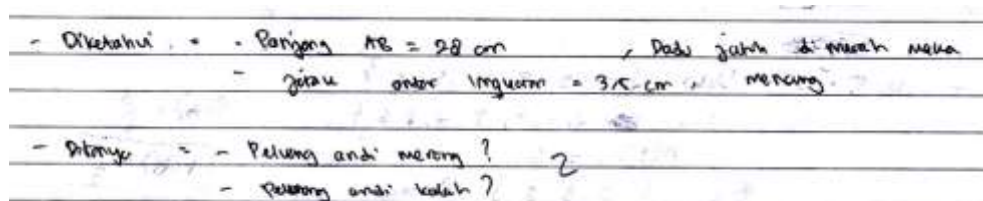 - Diketahui = - Panjang AB = 28 cm , Dadu jatuh di merah maka
- Jarak antar lingkaran = 3,5 cm , menang.
- Ditanya = - Peluang andi menang ? 2
- Peluang andi kalah ?